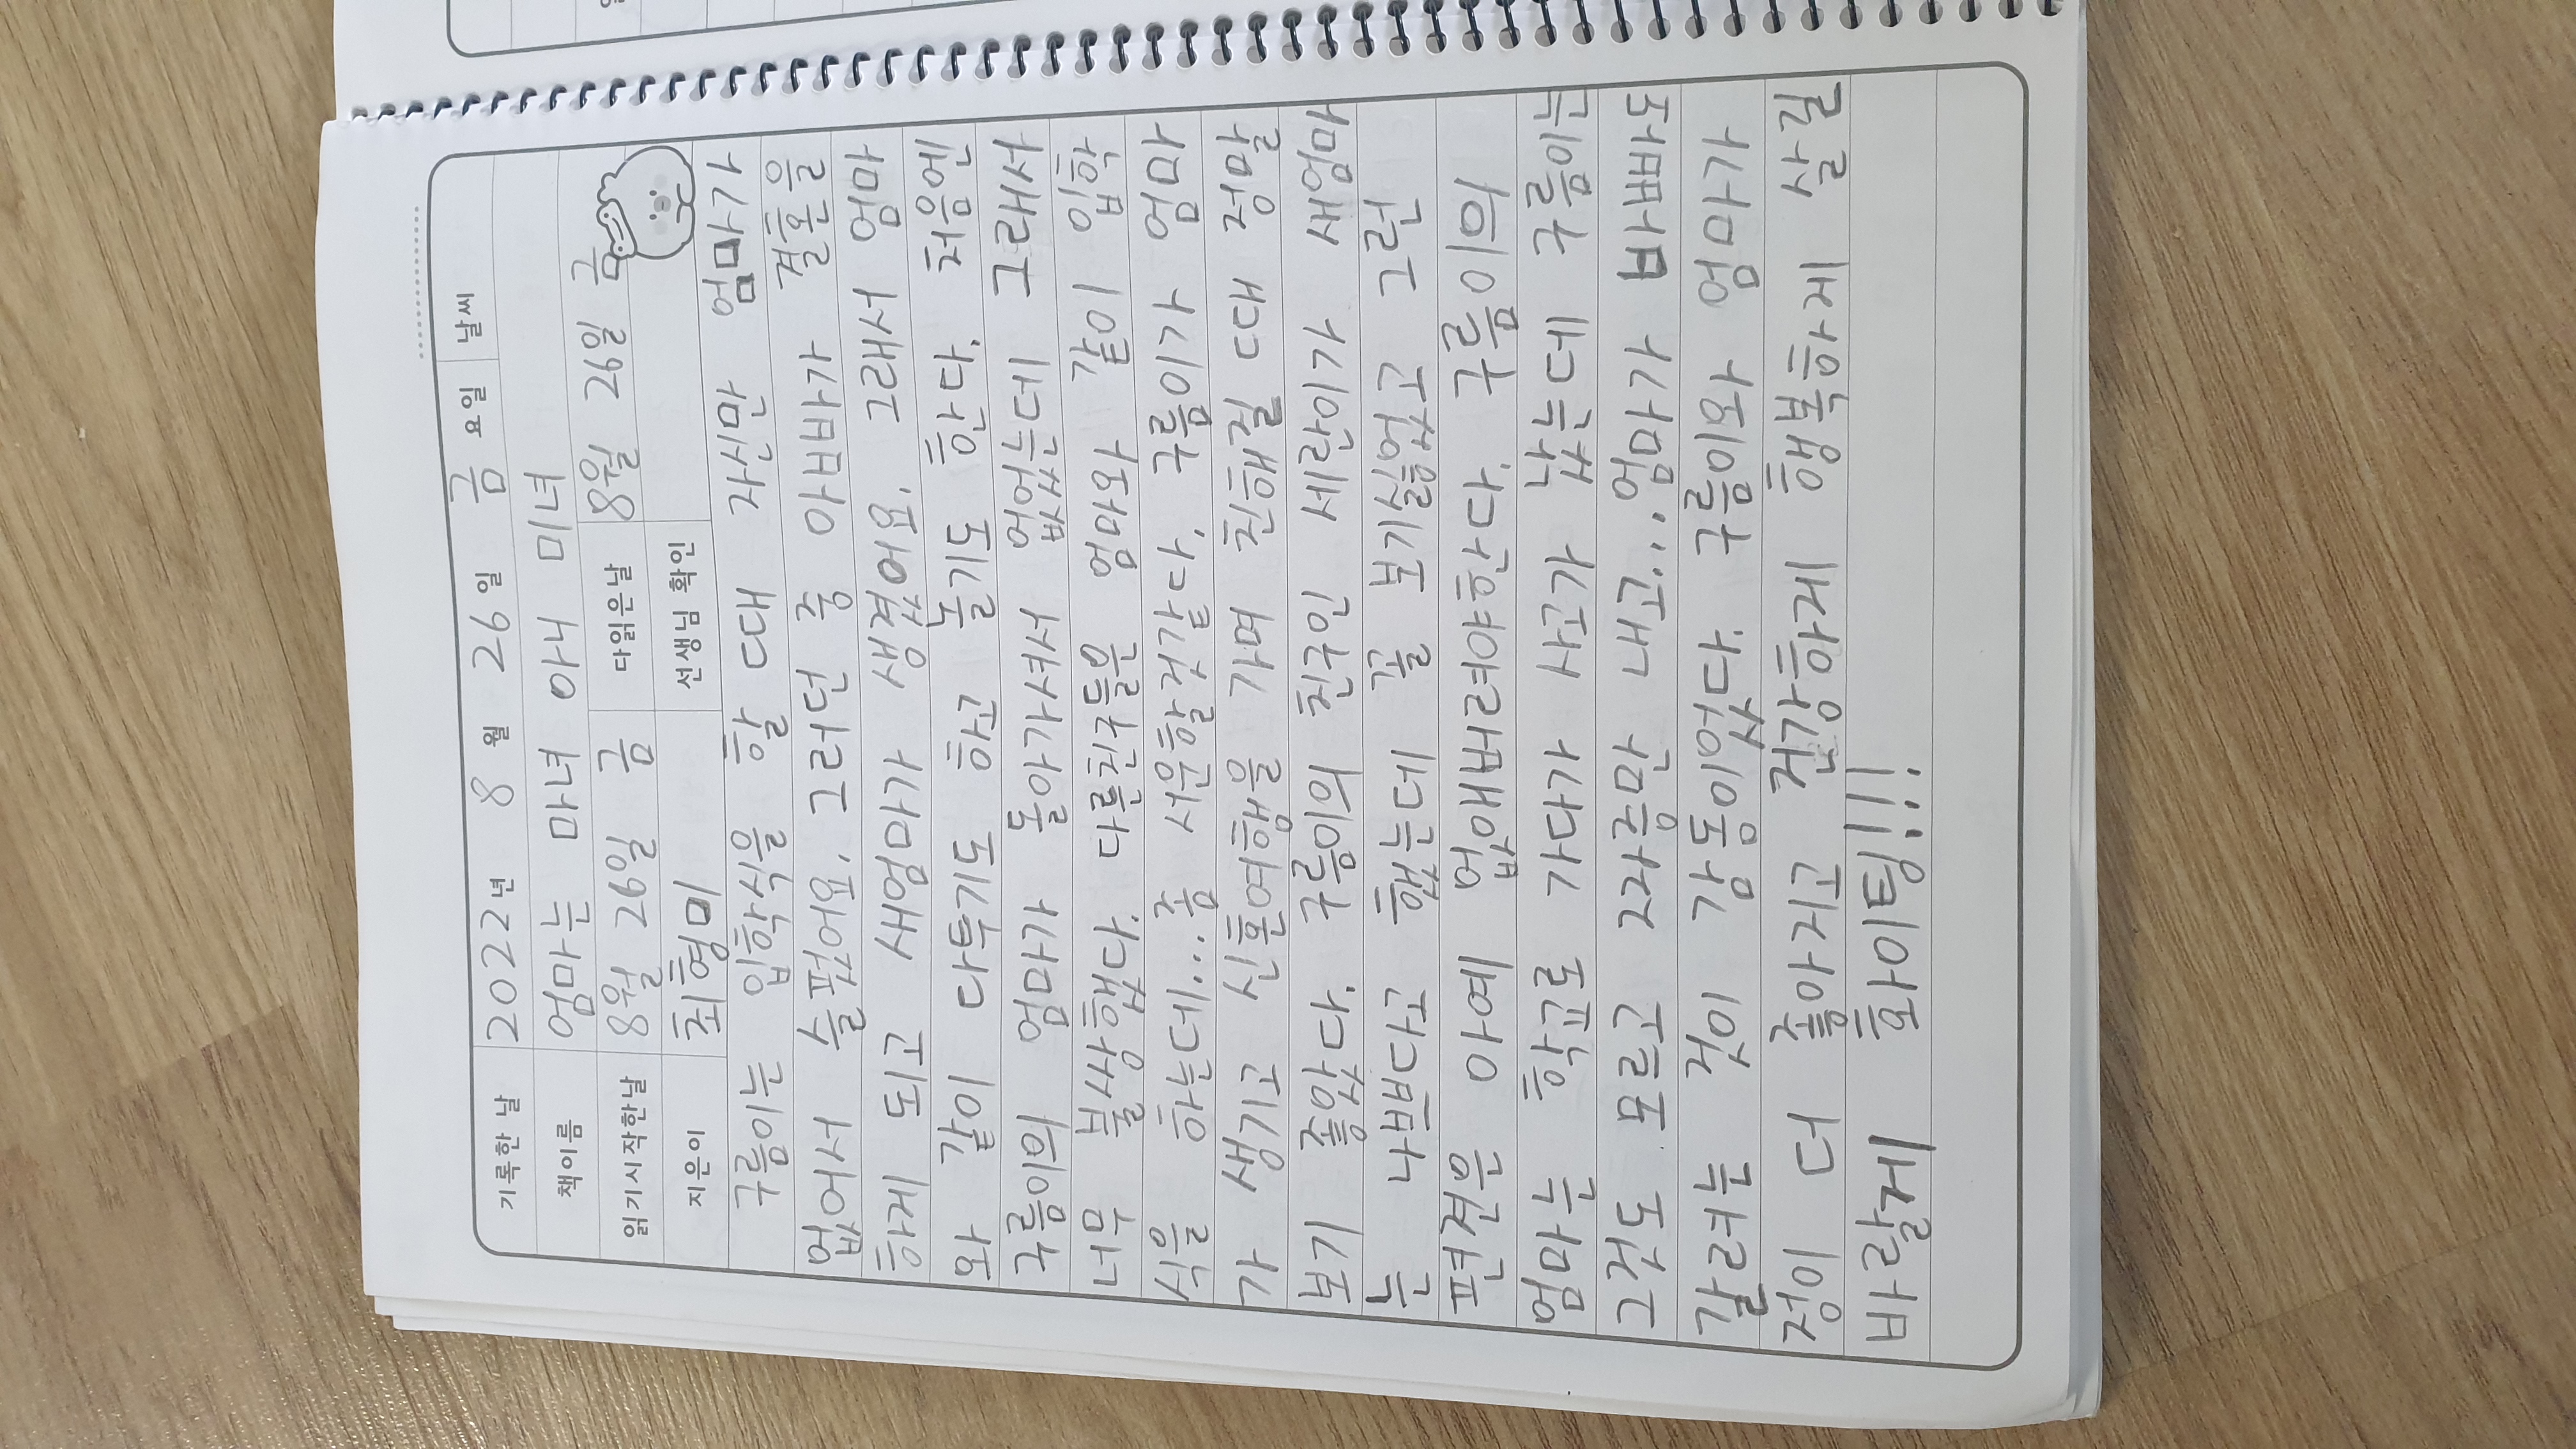 기록한 날 2022년 8월 26일 금요일 날씨
책이름 엄마는 마녀 아니 미녀
읽기시작한날 8월 26일 금 다읽은날 8월 26일 금
지은이 최형미 선생님 확인
구름이는 입학식을 할 때 자신만 엄마가
없어서 슬펐어요. 그러던 중 아빠가 결혼을
하게 되고 새엄마가 생겼어요. 그래서 엄마
와 같이 다투기도 하고 놀기도 한다. 처음엔
구름이의 엄마가 돌아가셔서 없었는데 그래서
너무 불쌍했다. 다른친구들은 엄마와 같이 입학
식을 하는데...좀 서운할것같다. 구름이가 엄마
가 생기고 신혼여행을 가며 친해질 때 정말
보기 좋았다. 구름이의 친구인 세란이가 새엄마
는 나쁘다고 했는데 꼴 보기싫었고 그런
편견은 아예 없애버려야한다. 구름이의
엄마는 학교로 가다가 사고가 났는데 구름이는
그것도 모르고 짜증만 내고...엄마가 바빠도
갈려는 것이 감동이었다. 구름이와 엄마가
정이 더 좋아지고 건강하게 행복하게 살길
바랄게 화이팅!!!